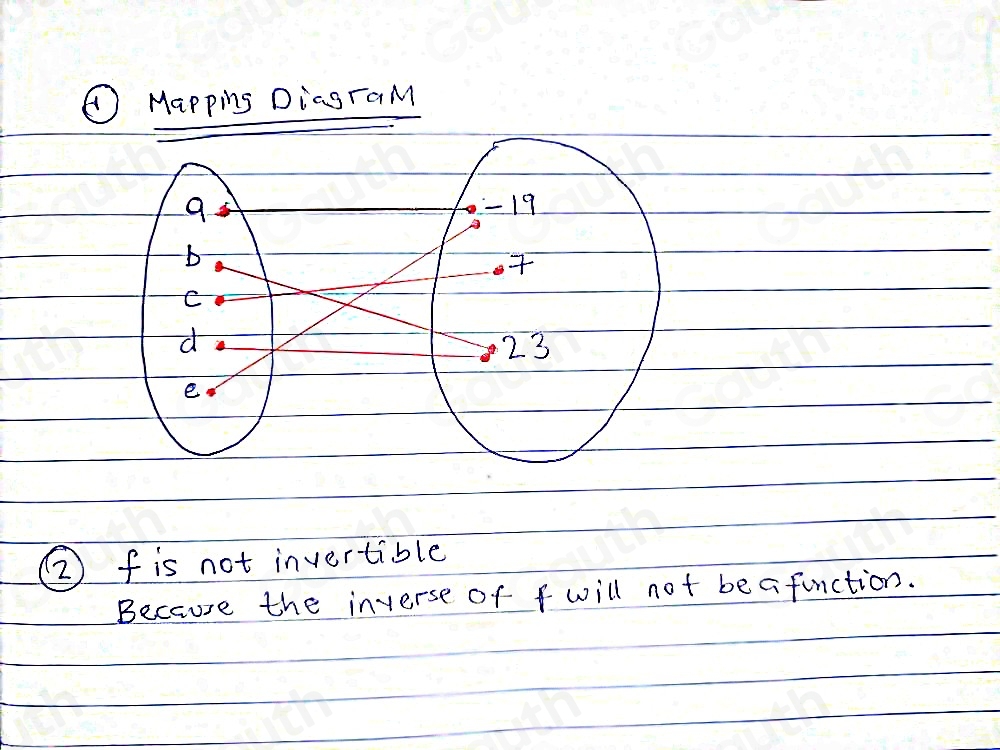 ① Mapping Diagram
a -19
b 7
c
d 23
e
② f is not invertible
Because the inverse of f will not be a function.
Gauth